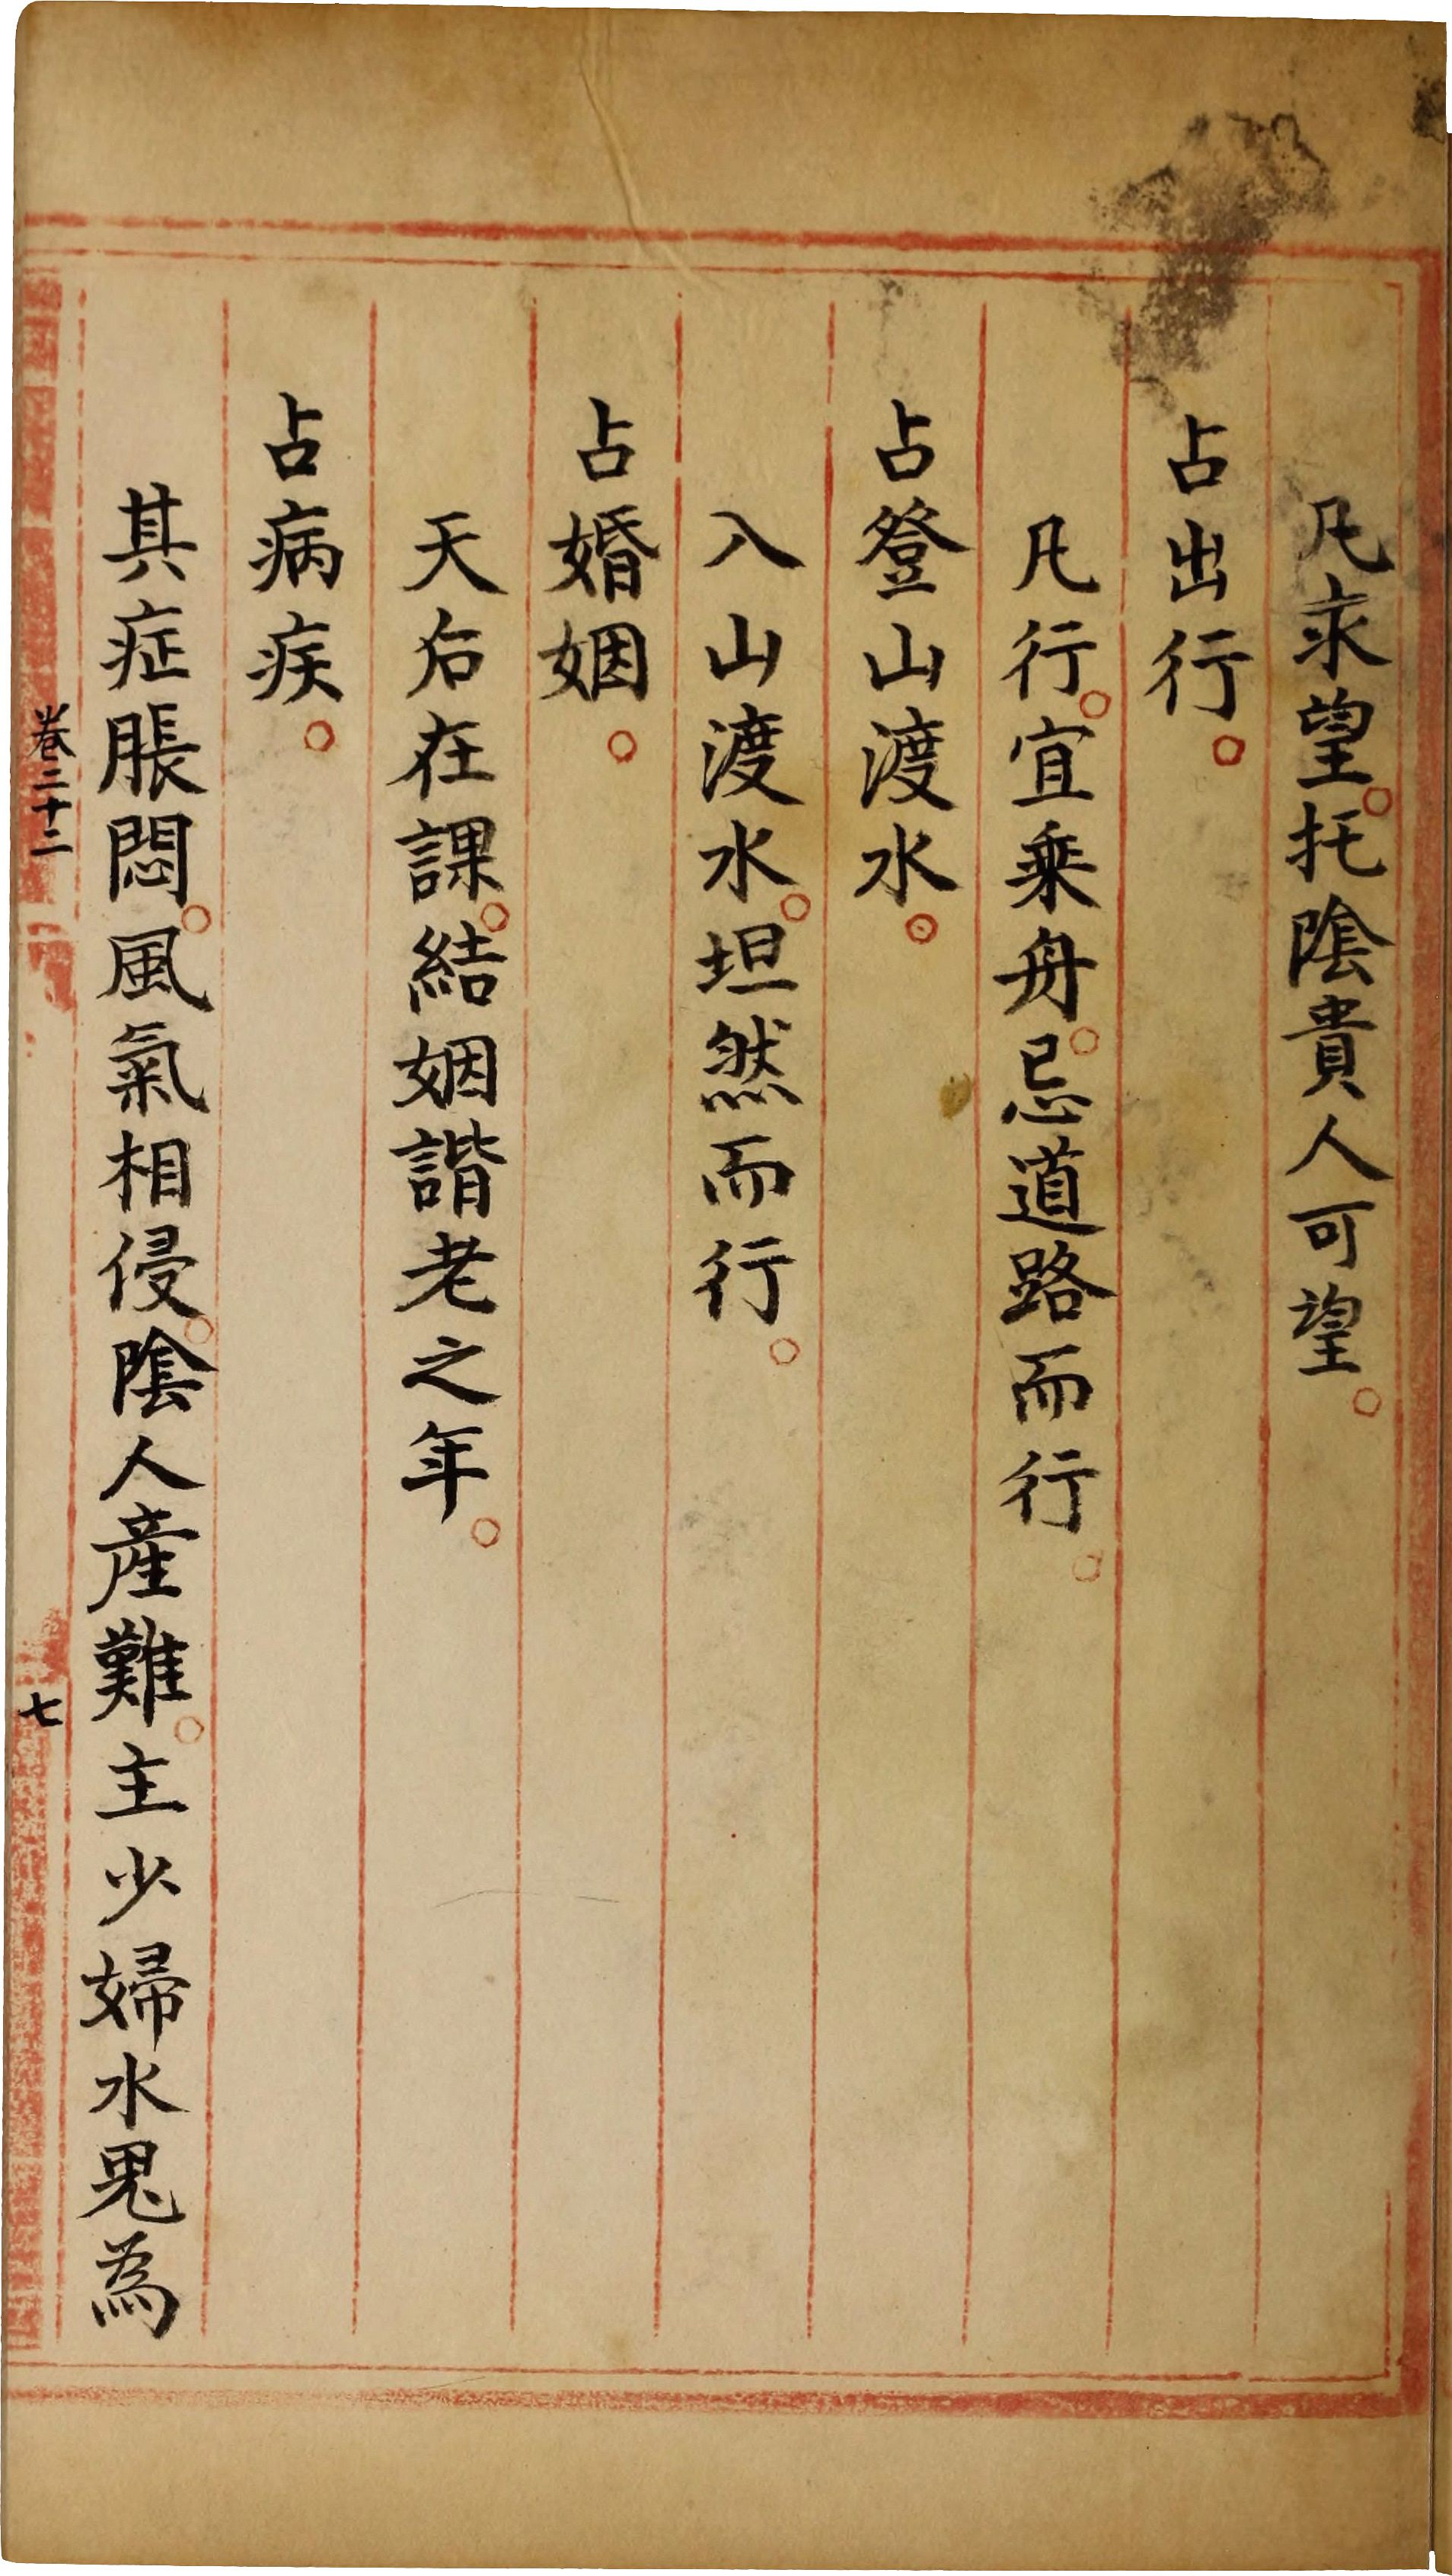 凡求望。托陰貴人可望。
占出行。
凡行。宜乘舟。忌道路而行。
占登山渡水。
入山渡水。坦然而行。
占婚姻。
天后在課。結姻諧老之年。
占病疾。
其症脹悶。風氣相侵。陰人產難。主少婦水鬼為
卷二十二
七